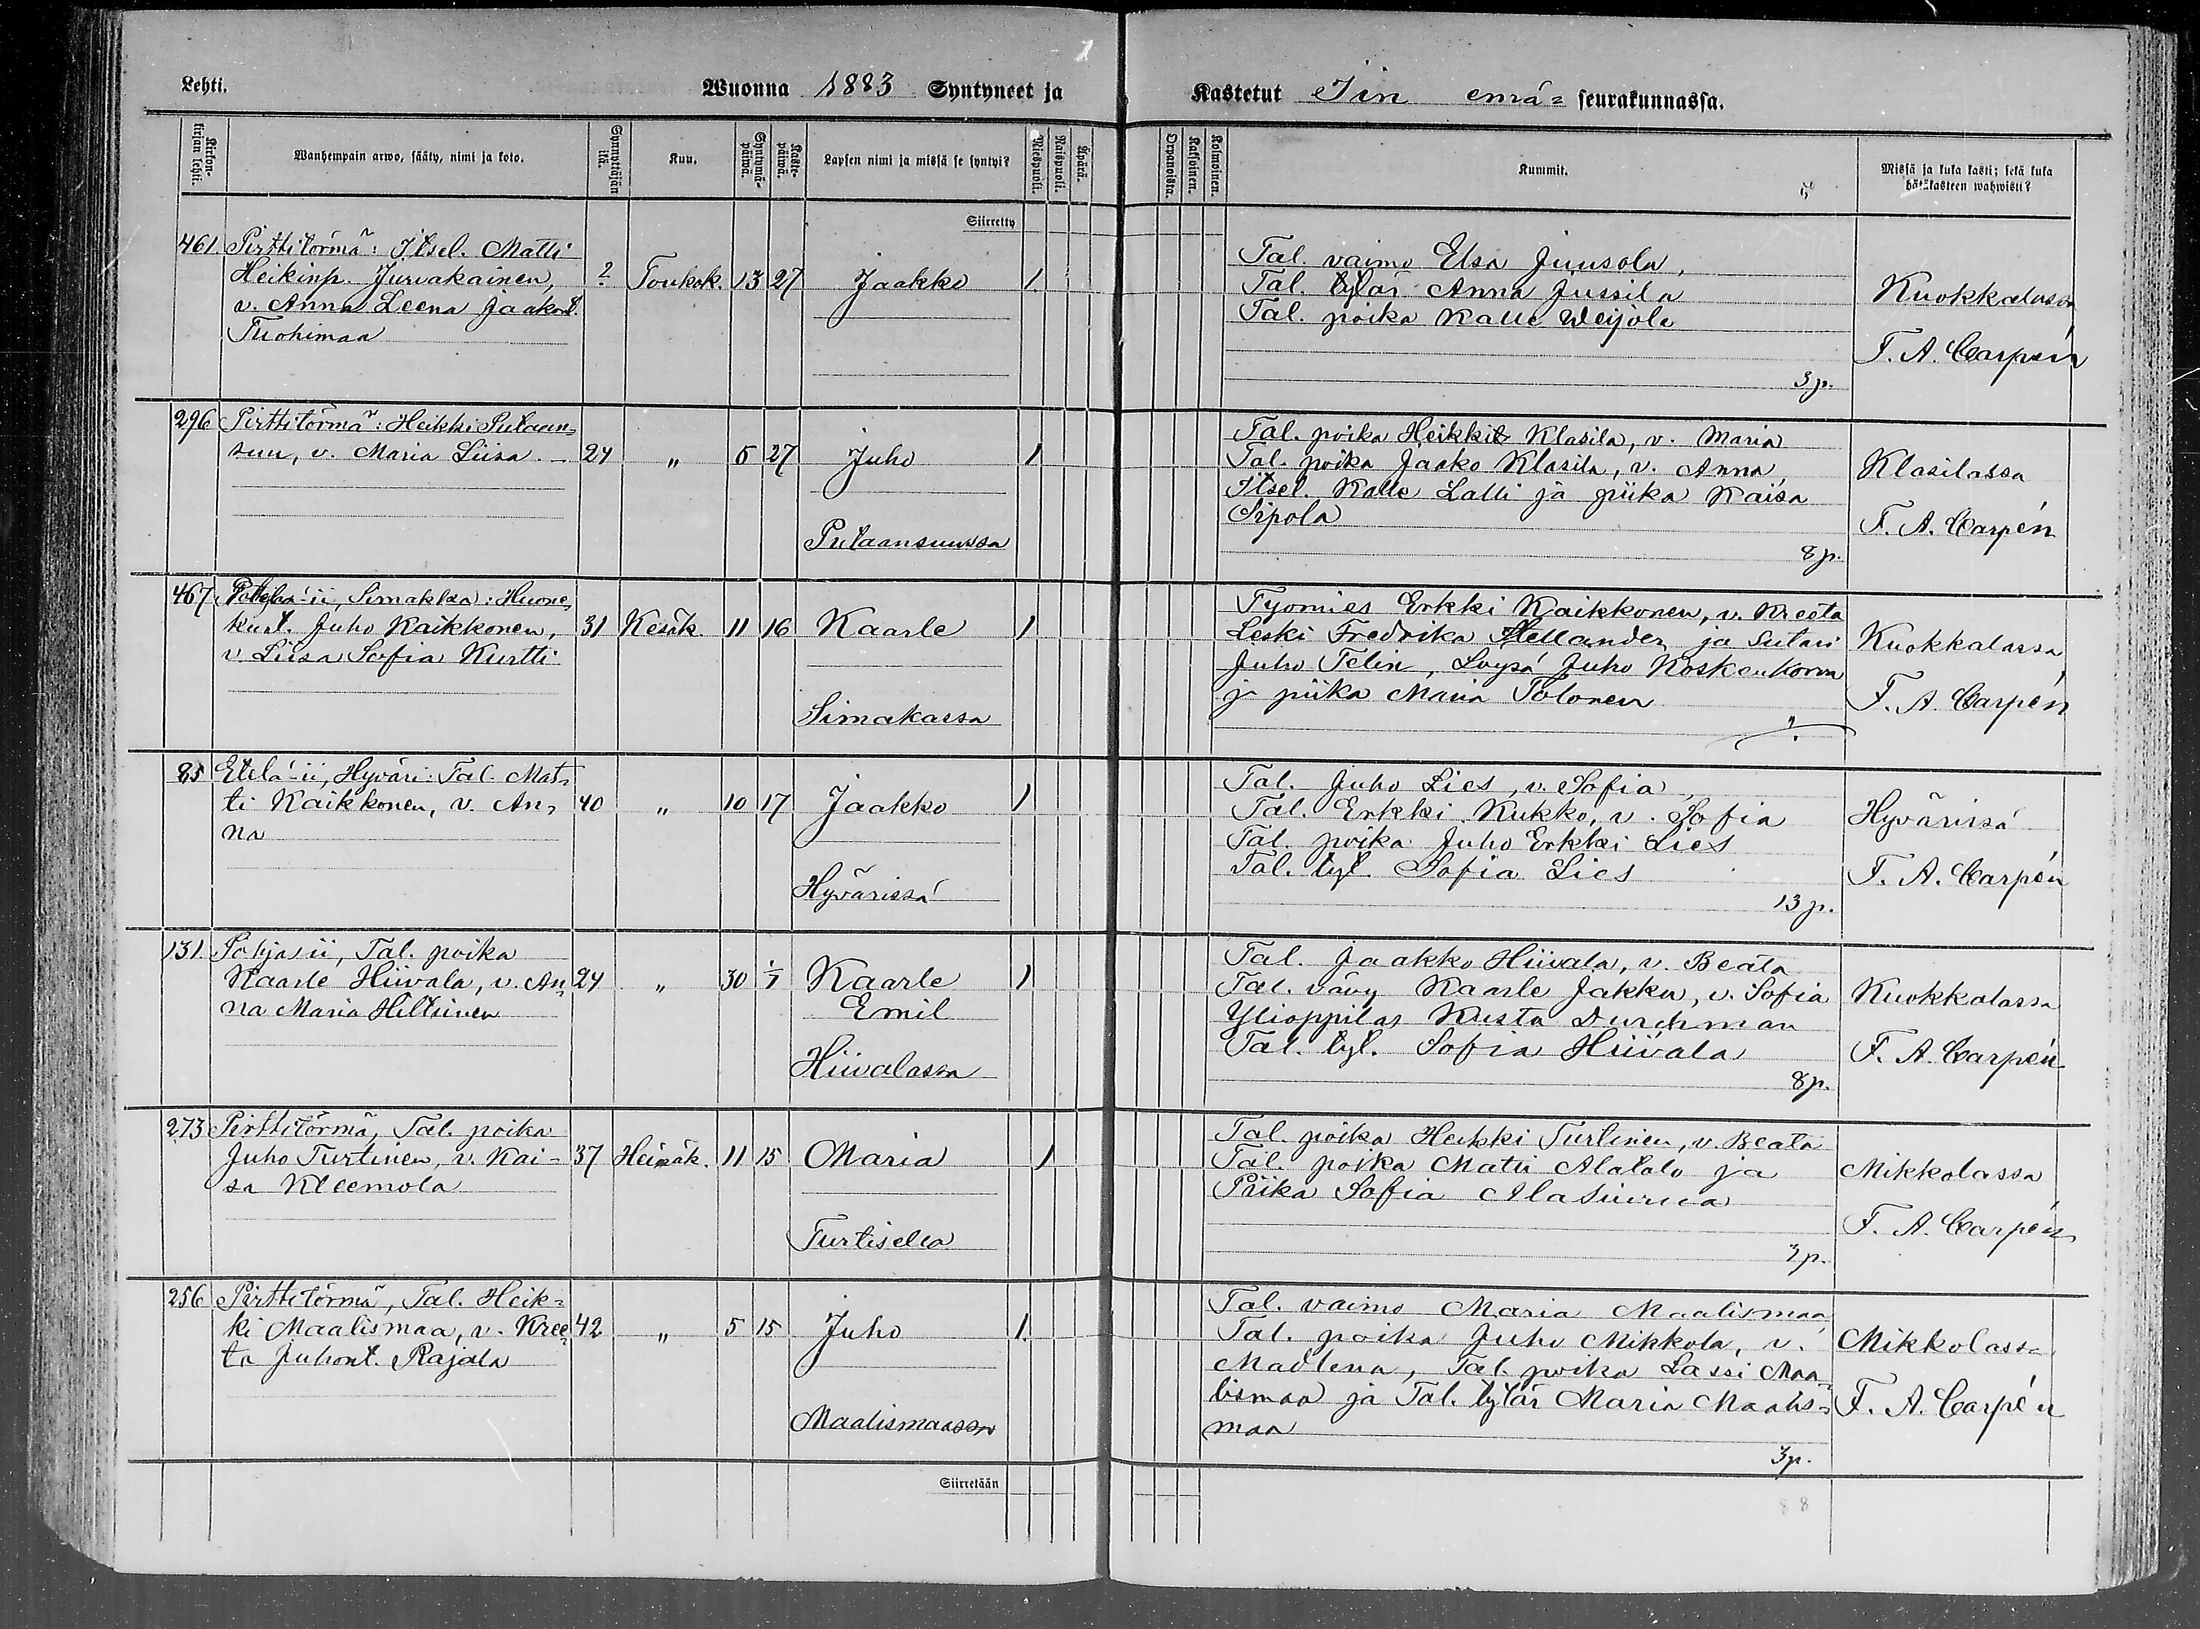 Lehti.
Wuonna 1883 Syntyneet ja
Kastetut Iin emä= seurakunnassa.
Kirkon-kirjan lehti.
Wanhempain arwo, sääty, nimi ja koto.
Synnyttäjän ikä.
Kuu.
Syntymä-päiwä.
Kaste-päiwä.
Lapsen nimi ja missä se syntyi?
Miespuoli.
Naispuoli.
Äpärä.
Orpanoista.
Kaksoinen.
Kolmoinen.
Kummit.
Missä ja kuka kasti; sekä kuka
hätäkasteen wahwisti?
Siirretty
461. Pirttitörmä: Itsel. Matti
Heikinp. Jurvakainen,
v. Anna Leena Jaakont.
Tuohimaa
? Toukok. 13 27 Jaakko 1.
Tal. vaimo Elsa Juusola,
Tal. tytär Anna Jussila
Tal. poika Kalle Weijola
3 p.
Kuokkalassa
F. A. Carpén
296 Pirttitörmä: Heikki Putaan=
suu, v. Maria Liisa.
24 " 6 27 Juho 1
Putaansuussa
Tal. poika Heikki Klasila, v. Maria
Tal. poika Jaako Klasila, v. Anna
Itsel. Kalle Lalli ja piika Kaisa
Sipola
8 p.
Klasilassa
F. A. Carpén
467 ii, Simakka: Huone,
kunt. Juho Kaikkonen,
v. Liisa Sofia Kurtti
31 Kesäk. 11 16 Kaarle 1
Simakassa
Työmies Erkki Kaikkonen, v. Kreeta
Leski Fredrika Hellander ja Sutari
Juho Telin, Loysä Juho Koskenkorva
ja piika Maria Tolonen
Kuokkalassa
F. A. Carpén
85 Etelä-ii, Hyväri: Tal. Mat=
ti Kaikkonen, v. An=
na
40 " 10 17 Jaakko 1
Hyvärissä
Tal. Juho Lies, v. Sofia,
Tal. Erkki Kukko, v. Sofia
Tal. poika Juho Erkki Lies
Tal. tyt. Sofia Lies
13 p.
Hyvärissä
F. A. Carpén
131. Pohjas ii, Tal. poika
Kaarle Hiivala, v. An=
na Maria Hiltunen
24 " 30 1/7 Kaarle
Emil
1
Hiivalassa
Tal. Jaakko Hiivala, v. Beata
Tal. vävy Kaarle Jakku, v. Sofia
Ylioppilas Kusta Durchman
Tal. tyt. Sofia Hiivala
8 p.
Kuokkalassa
F. A. Carpén
273 Pirttitörmä, Tal. poika
Juho Turtinen, v. Kai=
sa Kleemola
37 Heinäk. 11 15 Maria 1
Turtisella
Tal. poika Heikki Turtinen, v. Beata
Tal. poika Matti Alatalo ja
Piika Sofia
3 p.
Mikkolassa
F. A. Carpén
256 Pirttitörmä, Tal. Heik=
ki Maalismaa, v. Kree=
ta Juhont. Rajala
42 " 5 15 Juho 1.
Maalismaassa
Tal. vaimo Maria Maalismaa,
Tal. poika Juho Mikkola, v.
Madlena, Tal. poika Lassi Maa=
lismaa ja Tal. tytär Maria Maalis=
maa
3 p.
Mikkolassa
F. A. Carpén
Siirretään
88